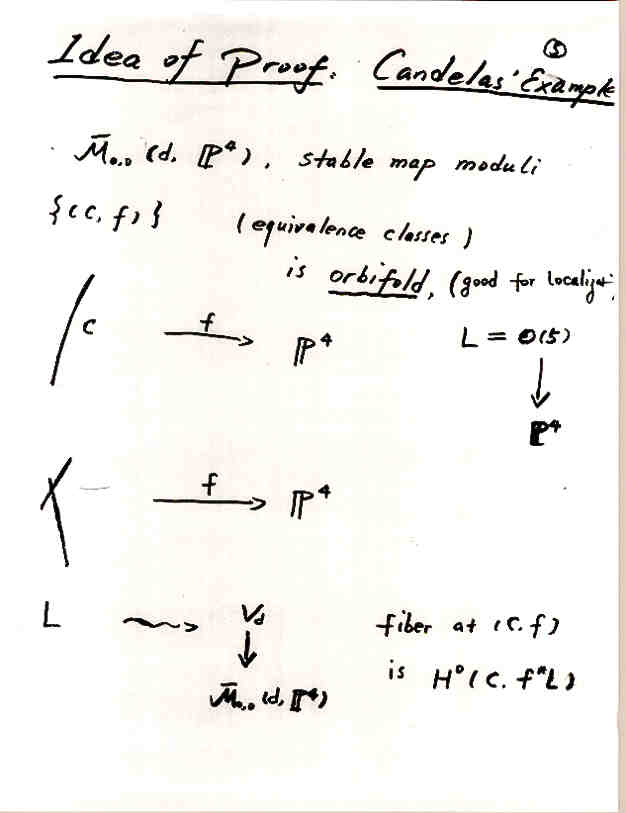 ⑤
Idea of Proof. Candelas' Example
M̄₀,₀ (d, ℙ⁴), stable map moduli
{(C, f)} (equivalence classes)
is orbifold, (good for localizat
C f ℙ⁴ L = O(5)
ℙ⁴
f ℙ⁴
L V_d fiber at (C, f)
M̄₀,₀ (d, ℙ⁴) is H⁰(C, f*L)